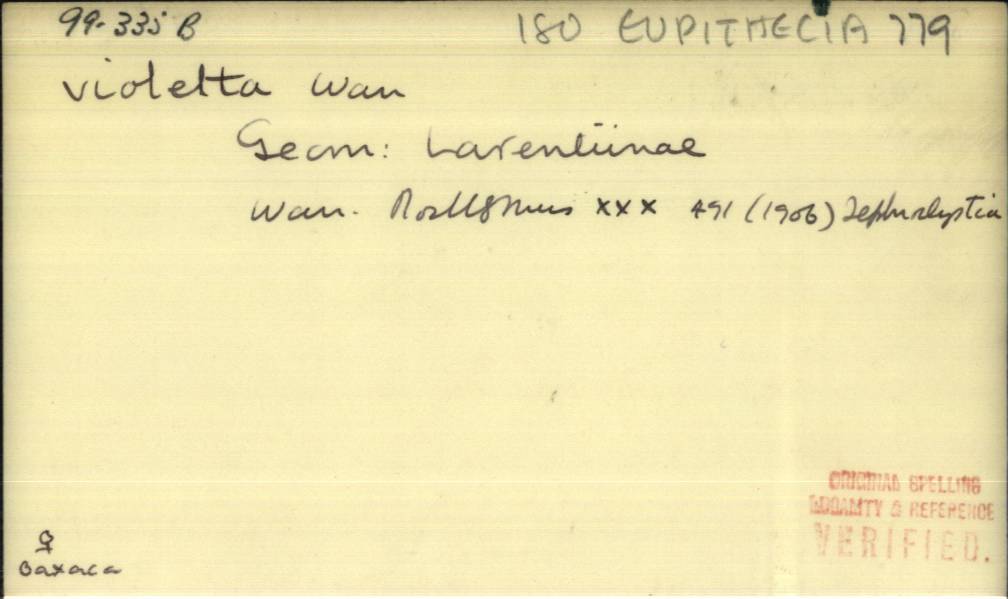 99-335 B
180 EUPITHECIA 779
violetta Warr
Geom: Larentiinae
Warr. US Mus xxx 491 (1906) Tephroclystia
ORIGINAL SPELLING
LOCALITY & REFERENCE
VERIFIED.
♀
Oaxaca